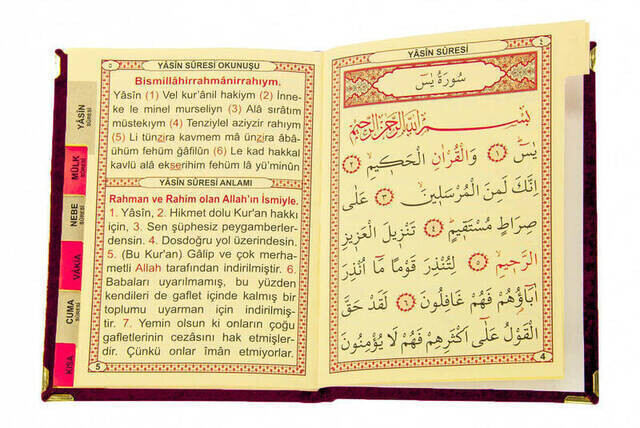 YÂSÎN SÛRESİ OKUNUŞU
Bismillâhirrahmânirrahıym.
Yâsîn (1) Vel kur'ânil hakiym (2) İnne-
ke le minel murseliyn (3) Alâ sırâtım
müstekıym (4) Tenziylel aziyzir rahıym
(5) Li tünzira kavmem mâ ünzira âbâ-
ühüm fehüm ğâfilûn (6) Le kad hakkal
kavlü alâ ekserihim fehüm lâ yü'minûn
YÂSÎN SÛRESİ ANLAMI
Rahman ve Rahim olan Allah'ın İsmiyle.
1. Yâsîn, 2. Hikmet dolu Kur'an hakkı
için, 3. Sen şüphesiz peygamberler-
densin. 4. Dosdoğru yol üzerindesin.
5. (Bu Kur'an) Gâlip ve çok merha-
metli Allah tarafından indirilmiştir. 6.
Babaları uyarılmamış, bu yüzden
kendileri de gaflet içinde kalmış bir
toplumu uyarman için indirilmiş-
tir. 7. Yemin olsun ki onların çoğu
gafletlerinin cezasını hak etmişler-
dir. Çünkü onlar îmân etmiyorlar.
5
YÂSÎN SÛRESİ
MÜLK SÛRESİ
NEBE SÛRESİ
VÂKIA
CUMA SÛRESİ
KISA
YÂSÎN SÛRESİ
٤
سُورَةُ يٰسٓ
بِسْمِ اللهِ الرَّحْمٰنِ الرَّحِيمِ
يٰسٓ ﴿١﴾ وَالْقُرْاٰنِ الْحَكِيمِ ﴿٢﴾
اِنَّكَ لَمِنَ الْمُرْسَلِينَ ﴿٣﴾ عَلٰى
صِرَاطٍ مُسْتَقِيمٍ ﴿٤﴾ تَنْزِيلَ الْعَزِيزِ
الرَّحِيمِ ﴿٥﴾ لِتُنْذِرَ قَوْمًا مَٓا اُنْذِرَ
اٰبَٓاؤُهُمْ فَهُمْ غَافِلُونَ ﴿٦﴾ لَقَدْ حَقَّ
الْقَوْلُ عَلٰٓى اَكْثَرِهِمْ فَهُمْ لَا يُؤْمِنُونَ
4